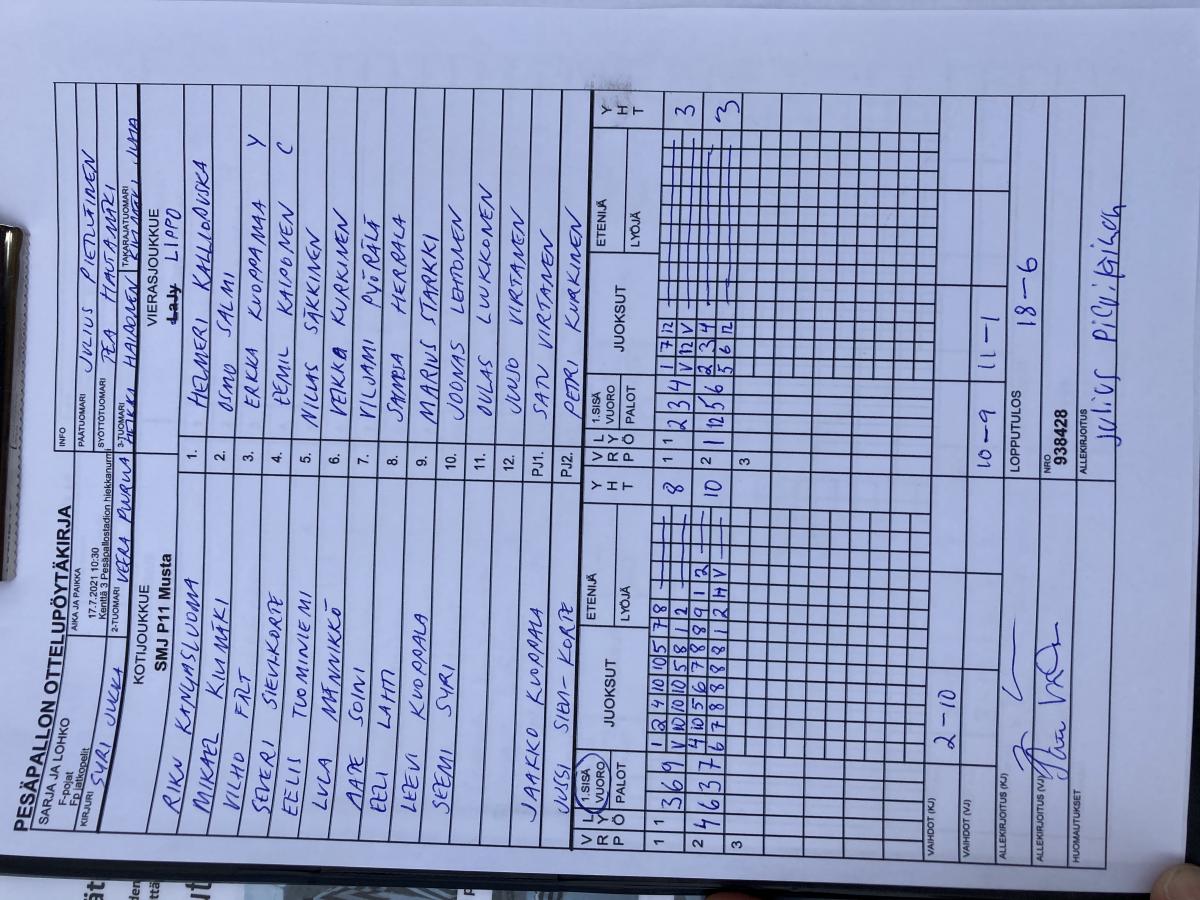 PESÄPALLON OTTELUPÖYTÄKIRJA
SARJA JA LOHKO
F-pojat
Fp jatkopelit
AIKA JA PAIKKA
17.7.2021 10:30
Kenttä 3 Pesäpallostadion hiekkanurmi
INFO
PÄÄTUOMARI
JULIUS
SYÖTTÖTUOMARI
PEA HAUTAMÄKI
KIRJURI
SYRI JUKKA
2-TUOMARI
VEERA
3-TUOMARI
HEIKKI
TAKARAJATUOMARI
JUHA
KOTIJOUKKUE
SMJ P11 Musta
VIERASJOUKKUE
LaJy LIPPO
RIKU KANGASLUOMA
MIKAEL KIVIMÄKI
VILHO FÄLT
SEVERI SIEVI-KORTE
EELIS TUOMINIEMI
LUCA MÄNNIKKÖ
AAPE SOINI
EELI LAHTI
LEEVI KUOPPALA
SEEMI SYRI
JAAKKO KUOPPALA
JUSSI SIEVI-KORTE
1. HELMERI KALLIORUSKA
2. OSMO SALMI
3. ERKKA KUOPPAMAA Y
4. EEMIL KAIPONEN C
5. NIILAS SÄKKINEN
6. VEIKKA KURKINEN
7. VILJAMI PYÖRÄLÄ
8. SAMPSA HERRALA
9. MARIUS STARKKI
10. JOONAS LEHTONEN
11. OULAS LUUKKONEN
12. JUNJO VIRTANEN
PJ1. SATU VIRTANEN
PJ2. PETRI KURKINEN
V R P
L Y Ö
1.SISÄ VUORO
PALOT
JUOKSUT
ETENIJÄ
LYÖJÄ
Y H T
V R P
L Y Ö
1.SISÄ VUORO
PALOT
JUOKSUT
ETENIJÄ
LYÖJÄ
Y H T
1 1 3 6 9
1 2 4 10 10 5 7 8
V 10 10 10 5 8 1 2
8
2 4 6 3 7
4 10 5 6 7 8 8 9 1 2
6 7 8 8 8 8 1 2 H V
10
3
1 1 2 3 4
1 7 12
V 12 V
3
2 1 12 5 6
2 3 4
5 6 12
3
3
VAIHDOT (KJ)
2-10
VAIHDOT (VJ)
10-9
11-1
ALLEKIRJOITUS (KJ)
LOPPUTULOS
18-6
ALLEKIRJOITUS (VJ)
NRO
938428
HUOMAUTUKSET
ALLEKIRJOITUS
Julius